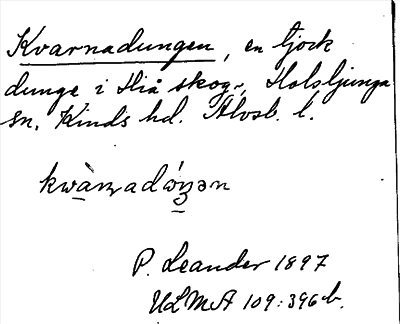 Kvarnadungen, en tjock
dunge i Hiå skog, Holsljunga
sn, Kinds hd. Älvsb. l.
kwàɳadó̱ŋən
P. Leander 1897
ULMA 109:396 b.